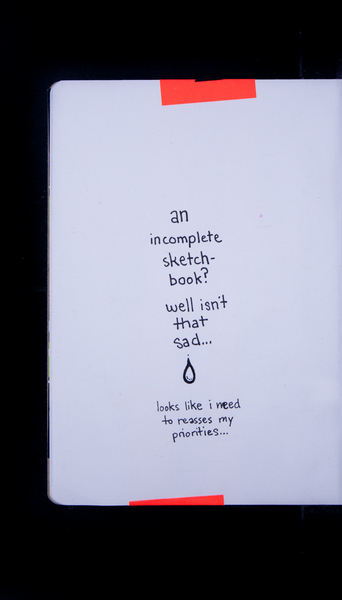 an
incomplete
sketch-
book?
well isn't
that
sad...
looks like i need
to reasses my
priorities...